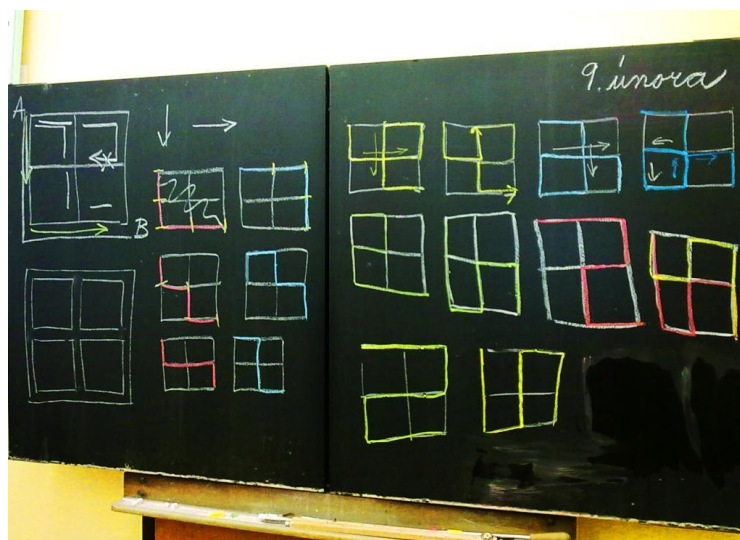 9. února
A
B